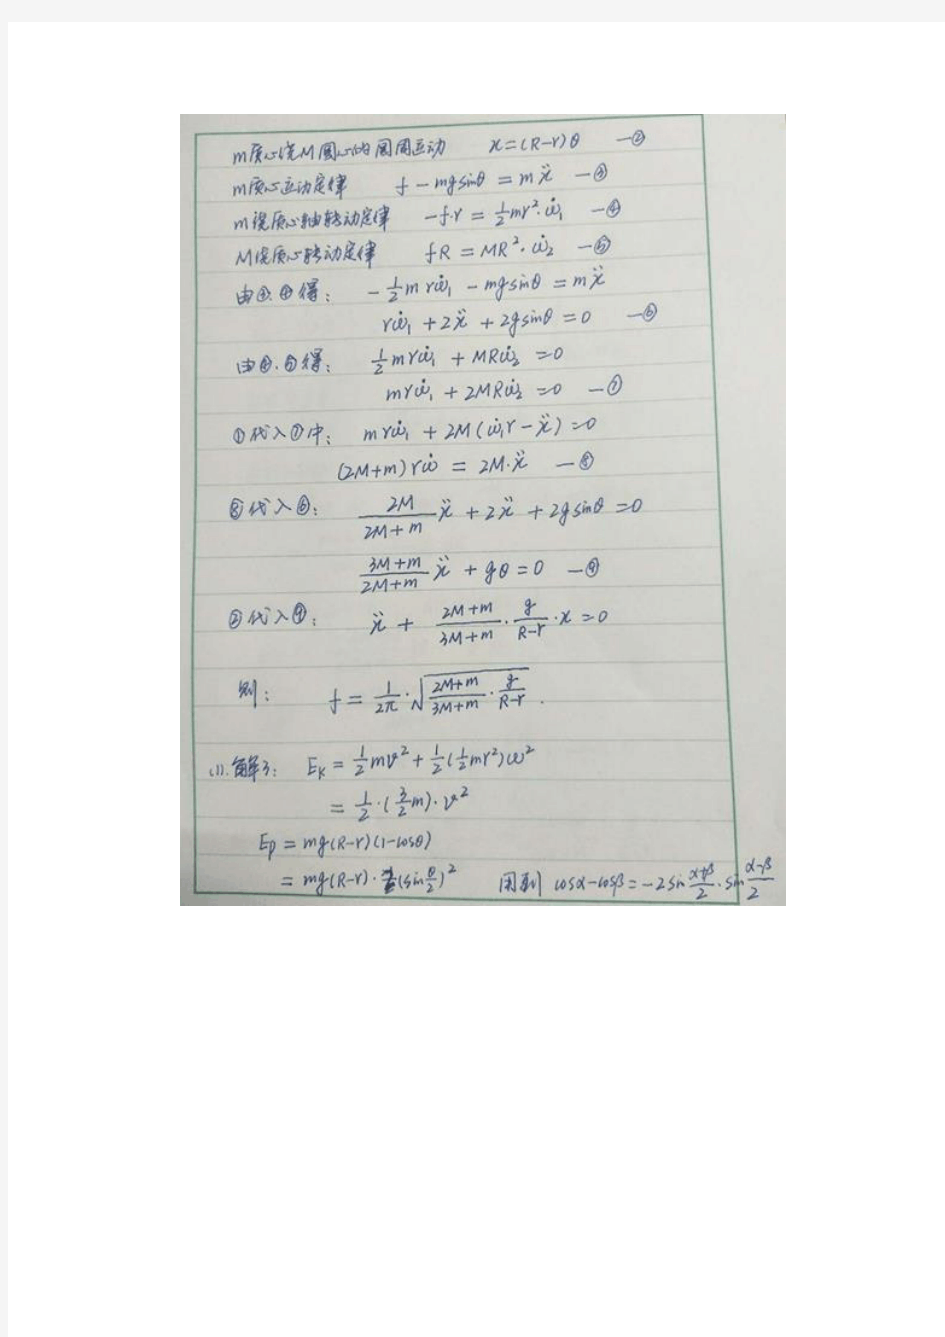 m质心绕M圆心的圆周运动 x=(R-r)θ —②
m质心运动定律 f-mgsinθ=mẍ —③
m绕质心轴转动定律 -f·r=½mr²·ω̇₁ —④
M绕质心转动定律 fR=MR²·ω̇₂ —⑤
由③.④得: -½mrω̇₁-mgsinθ=mẍ
rω̇₁+2ẍ+2gsinθ=0 —⑥
由④.⑤得: ½mrω̇₁+MRω̇₂=0
mrω̇₁+2MRω̇₂=0 —⑦
①代入⑦中: mrω̇₁+2M(ω̇₁r-ẍ)=0
(2M+m)rω̇=2M·ẍ —⑧
⑧代入⑥: 2M/(2M+m) ẍ+2ẍ+2gsinθ=0
(3M+m)/(2M+m) ẍ+gθ=0 —⑨
②代入⑨: ẍ+(2M+m)/(3M+m)·g/(R-r)·x=0
则: f=1/2π·√((2M+m)/(3M+m)·g/(R-r)).
(1).解3: Eₖ=½mv²+½(½mr²)ω²
=½·(3/2m)·v²
Ep=mg(R-r)(1-cosθ)
=mg(R-r)·2(sinθ/2)² 用到 cosα-cosβ=-2sin(α+β)/2·sin(α-β)/2